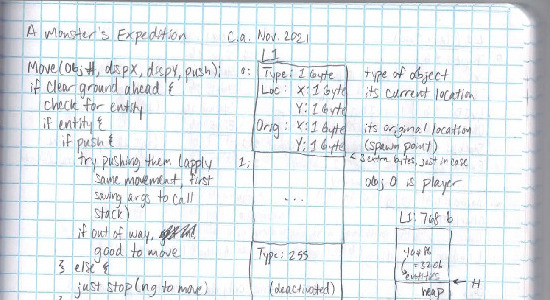 A Monster's Expedition c.a. Nov. 2021
Move(Obj#, dispX, dispY, push);
if clear ground ahead {
check for entity
if entity {
if push {
try pushing them (apply
same movement, first
saving args to call
stack)
if out of way,
good to move
} else {
just stop (ng to move)
L1
0: Type: 1 byte type of object
Loc: X: 1 byte its current location
Y: 1 byte
Orig: X: 1 byte its original location
Y: 1 byte (spawn point)
extra bytes, just in case
1; obj 0 is player
...
Type: 255
(deactivated)
L1: 768 b
entities
H
heap